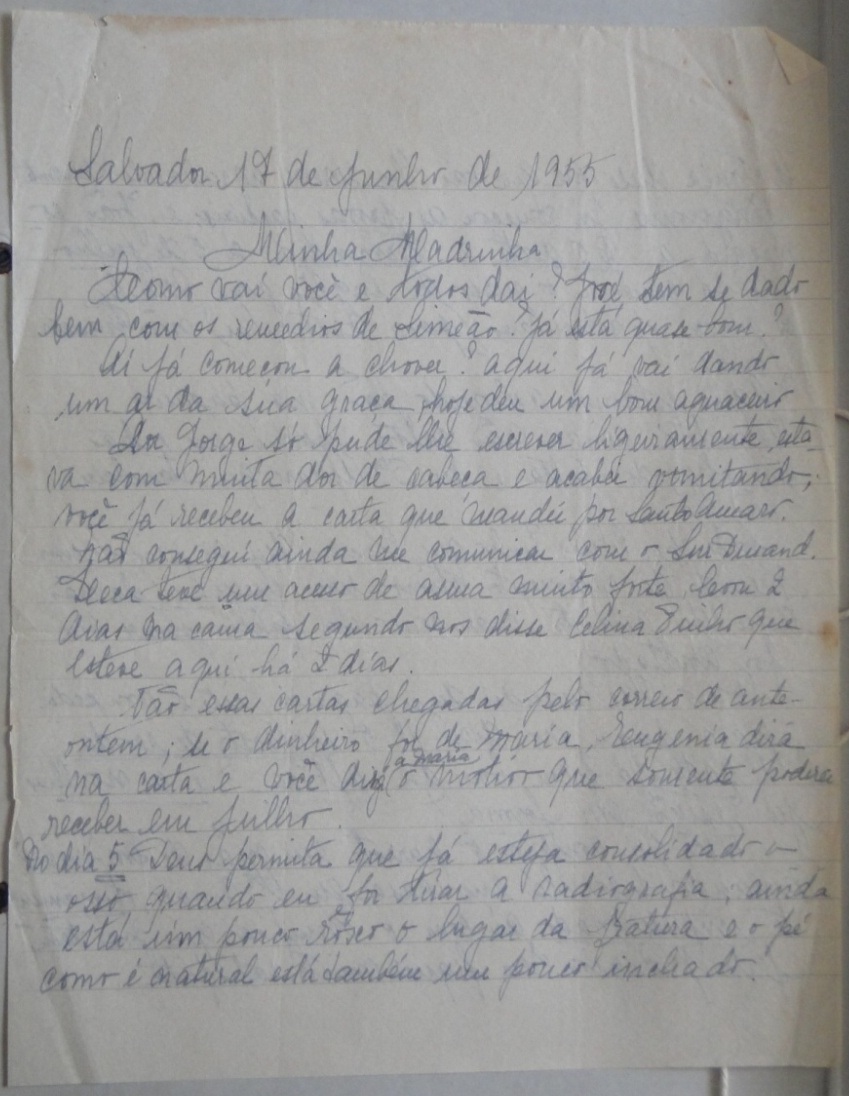 Salvador 17 de Junho de 1955
Minha Madrinha
Como vai você e todos daí? José tem se dado
bem com os remedios de Simeão? Já está quase bom?
Aí já começou a chover? aqui já vai dando
um ar da sua graça, hoje deu um bom aguaceiro
Jorge só pude lhe escrever ligeiramente, esta-
va com muita dor de cabeça e acabei vomitando;
você já recebeu a carta que mandei por Santo Amaro.
Não consegui ainda me comunicar com o Snr Durand.
Zeca teve um acesso de asma muito forte, levou 2
dias na cama segundo nos disse Celina que
esteve aqui há 2 dias.
Vão essas cartas chegadas pelo correio de ante-
ontem; se o dinheiro for de Maria, Eugenia dirá
na carta e você dirá a Maria o motivo que somente poderá
receber em Julho.
No dia 5 Deus permita que já esteja consolidado o
osso quando eu for tirar a radiografia; ainda
está um pouco rôxo o lugar da fratura e o pé
como é natural está também um pouco inchado.